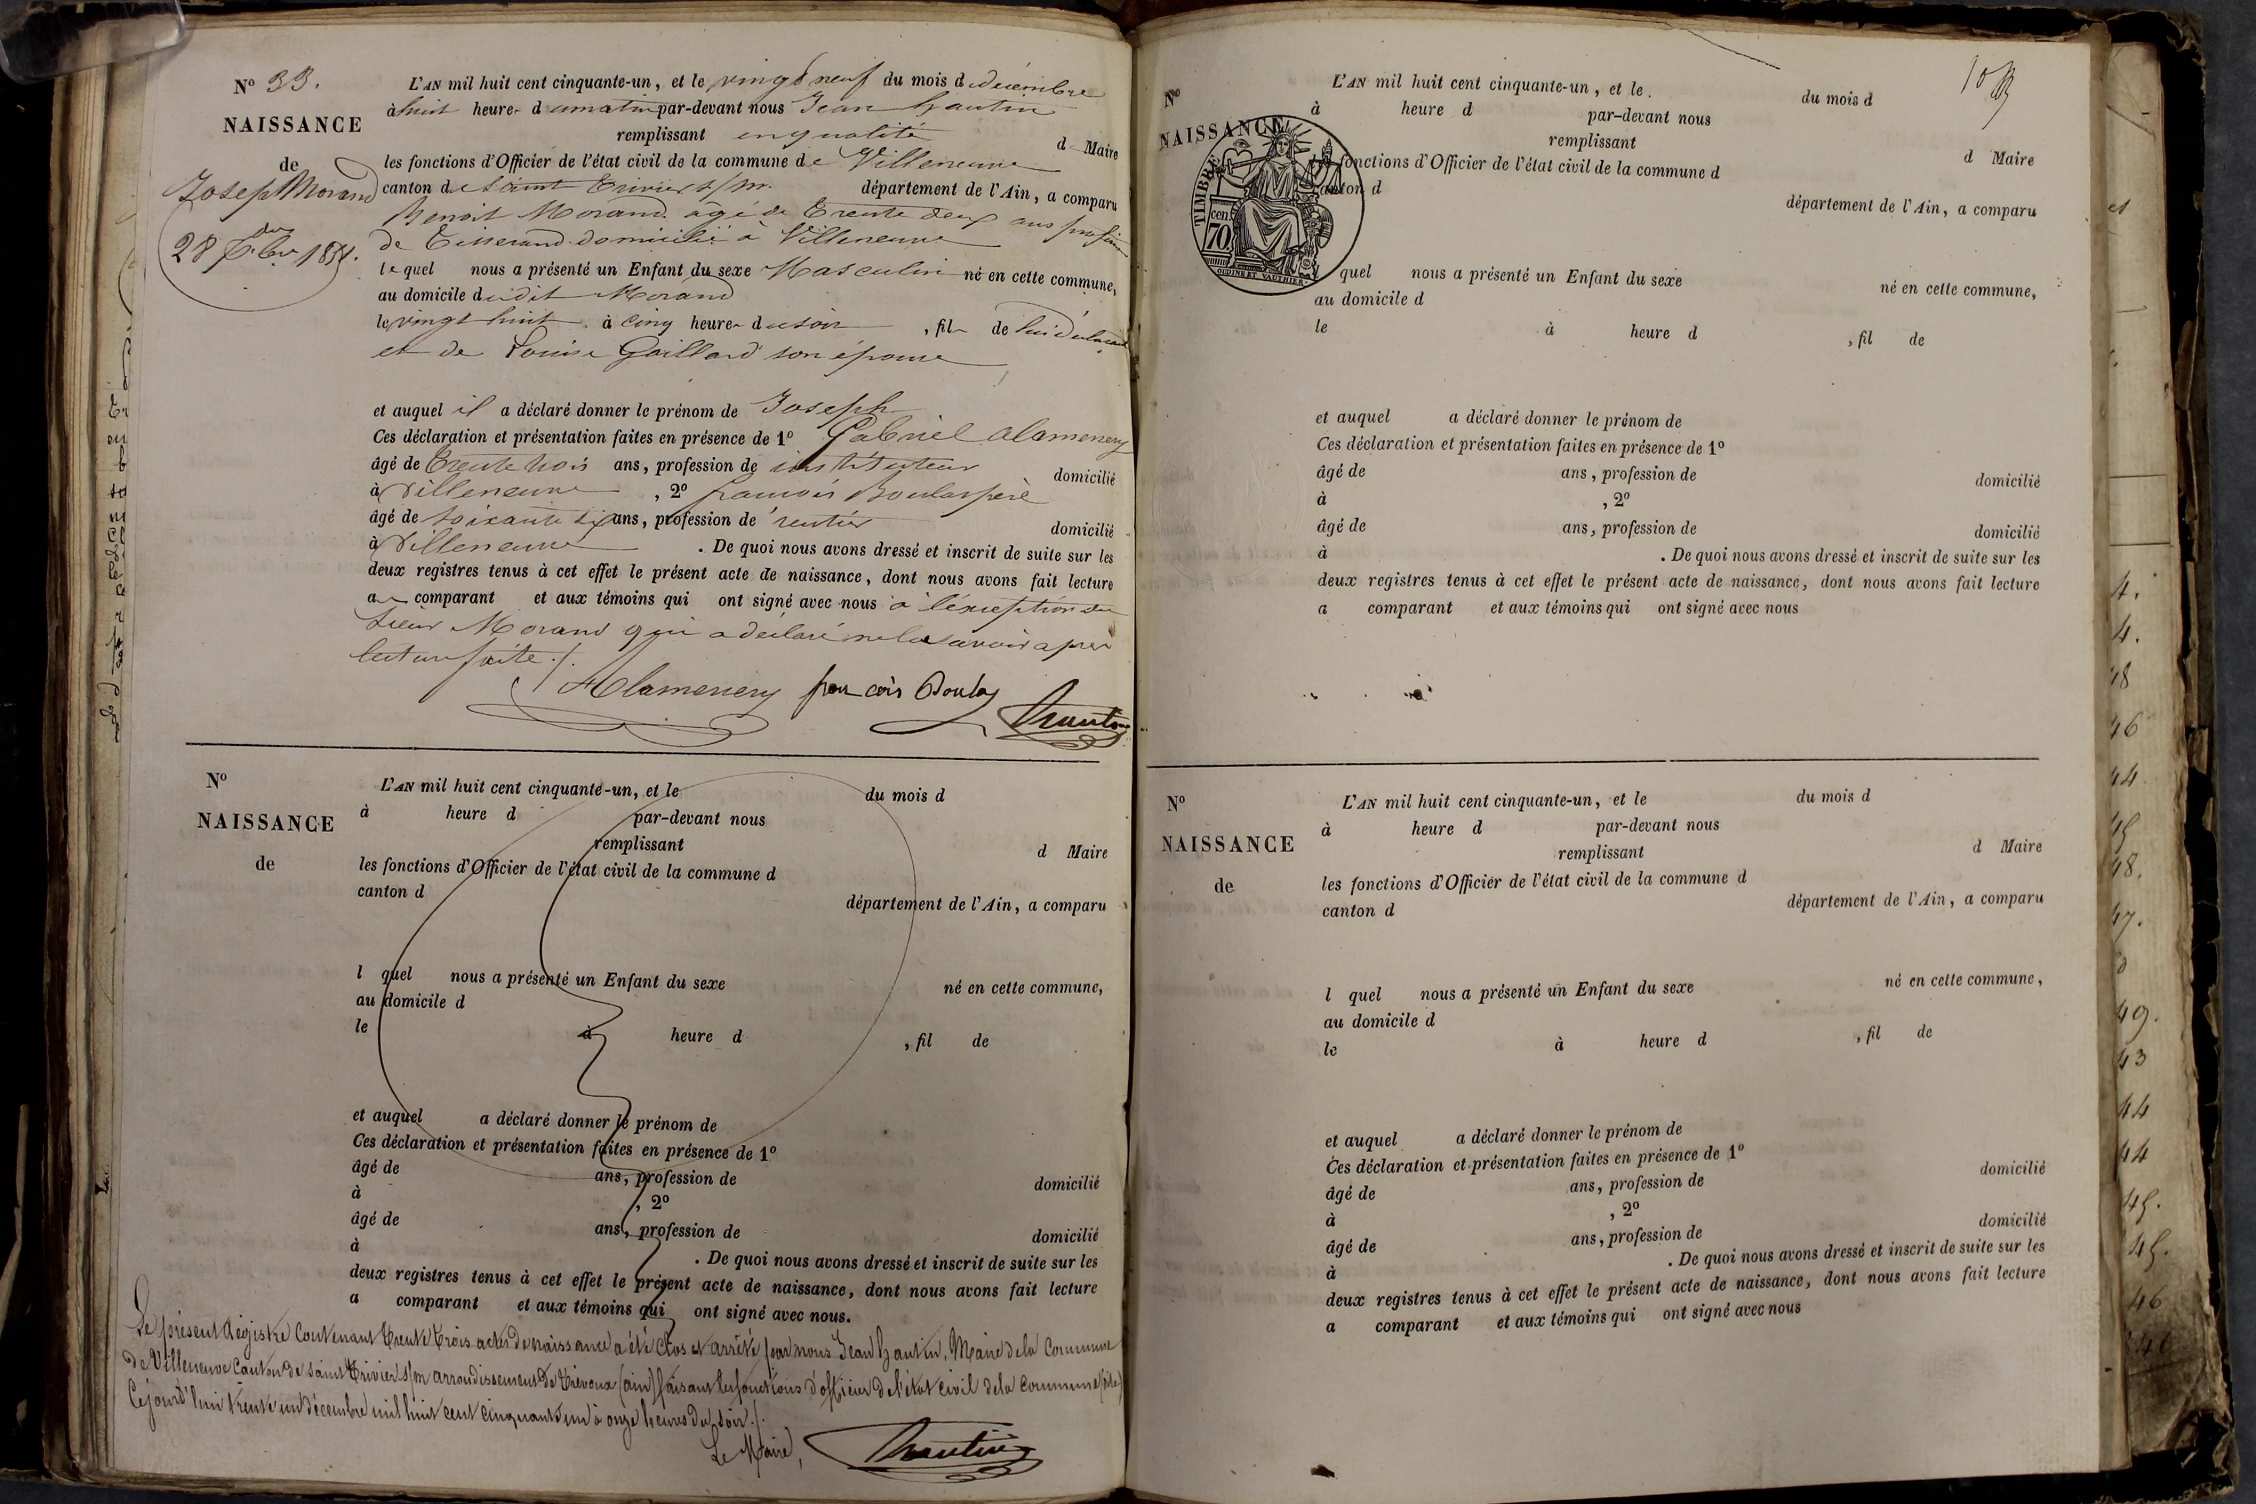 N° 33.
NAISSANCE
de
Joseph Morand
28 Xbre 1851.
L'AN mil huit cent cinquante-un, et le vingt neuf du mois de décembre
à huit heures du matin par-devant nous Jean hautin
remplissant en qualité de Maire
les fonctions d'Officier de l'état civil de la commune de Villeneuve
canton de Saint Trivier s/m. département de l'Ain, a comparu
Benoit Morand âgé de trente deux ans profession
de Tisserand domicilié à Villeneuve
lequel nous a présenté un Enfant du sexe Masculin né en cette commune,
au domicile dudit Morand
le vingt huit à cinq heures du soir, fils de lui déclarant
et de Louise Gaillard son épouse
et auquel il a déclaré donner le prénom de Joseph
Ces déclaration et présentation faites en présence de 1° Gabriel Alamenery
âgé de trente trois ans, profession de instituteur domicilié
à Villeneuve, 2° françois Boulas père
âgé de soixante six ans, profession de rentier domicilié
à Villeneuve. De quoi nous avons dressé et inscrit de suite sur les
deux registres tenus à cet effet le présent acte de naissance, dont nous avons fait lecture
au comparant et aux témoins qui ont signé avec nous à l'exception du
sieur Morand qui a déclaré ne le savoir après
lecture faite ./.
Alamenery françois Boulas
hautin
N°
NAISSANCE
de
L'AN mil huit cent cinquante-un, et le du mois d
à heure d par-devant nous
remplissant d Maire
les fonctions d'Officier de l'état civil de la commune d
canton d département de l'Ain, a comparu
l quel nous a présenté un Enfant du sexe né en cette commune,
au domicile d
le à heure d , fil de
et auquel a déclaré donner le prénom de
Ces déclaration et présentation faites en présence de 1°
âgé de ans, profession de domicilié
à , 2°
âgé de ans, profession de domicilié
à . De quoi nous avons dressé et inscrit de suite sur les
deux registres tenus à cet effet le présent acte de naissance, dont nous avons fait lecture
a comparant et aux témoins qui ont signé avec nous.
Le présent Régistre Contenant Trente Trois actes de naissance a été Clos et arrêté par nous Jean hautin, Maire de la Commune
de Villeneuve Canton de Saint Trivier s/m arrondissement de Trévoux (ain) faisant les fonctions d'officier de l'état civil de la Commune (dite)
Cejourd'hui trente un décembre mil huit cent cinquante un à onze heures du soir ./.
Le Maire,
hautin
10
N°
NAISSANCE
TIMBRE
70 cen.
OUDINE ET VAUTHIER
L'AN mil huit cent cinquante-un, et le. du mois d
à heure d par-devant nous
remplissant d Maire
fonctions d'Officier de l'état civil de la commune d
canton d département de l'Ain, a comparu
quel nous a présenté un Enfant du sexe né en cette commune,
au domicile d
le à heure d , fil de
et auquel a déclaré donner le prénom de
Ces déclaration et présentation faites en présence de 1°
âgé de ans, profession de domicilié
à , 2°
âgé de ans, profession de domicilié
à . De quoi nous avons dressé et inscrit de suite sur les
deux registres tenus à cet effet le présent acte de naissance, dont nous avons fait lecture
a comparant et aux témoins qui ont signé avec nous
N°
NAISSANCE
de
L'AN mil huit cent cinquante-un, et le du mois d
à heure d par-devant nous
remplissant d Maire
les fonctions d'Officier de l'état civil de la commune d
canton d département de l'Ain, a comparu
l quel nous a présenté un Enfant du sexe né en cette commune,
au domicile d
le à heure d , fil de
et auquel a déclaré donner le prénom de
Ces déclaration et présentation faites en présence de 1°
âgé de ans, profession de domicilié
à , 2°
âgé de ans, profession de domicilié
à . De quoi nous avons dressé et inscrit de suite sur les
deux registres tenus à cet effet le présent acte de naissance, dont nous avons fait lecture
a comparant et aux témoins qui ont signé avec nous